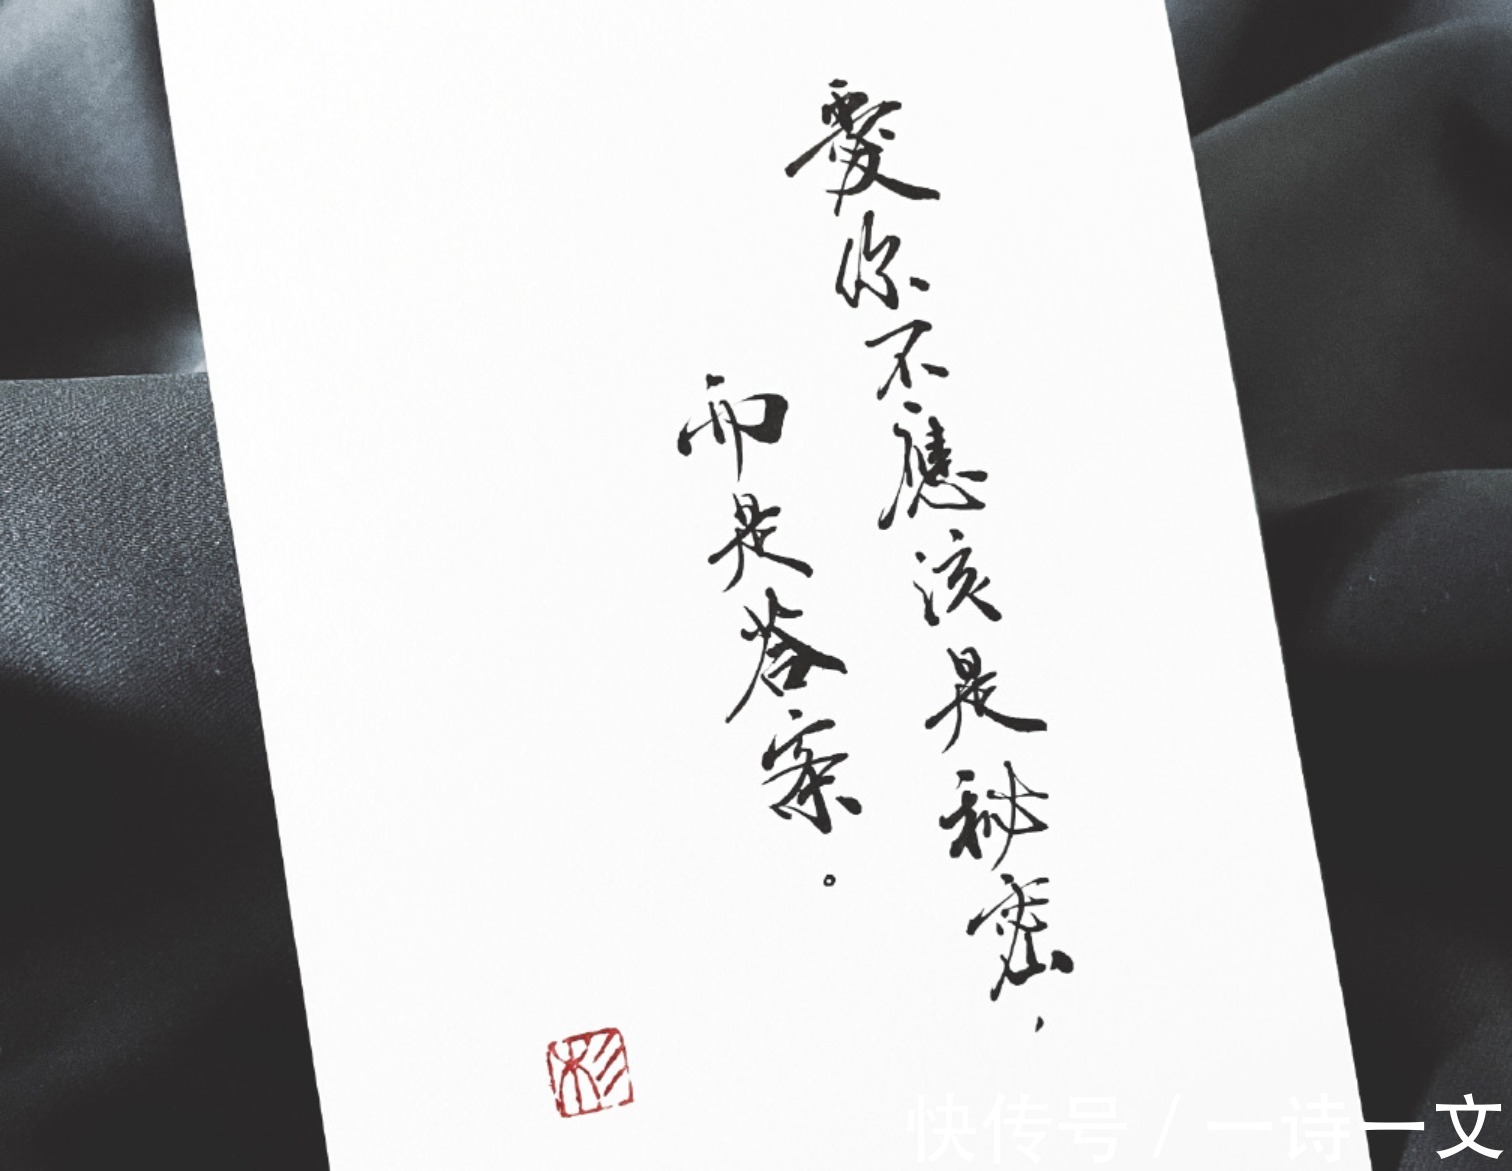 愛你不應該是秘密，
而是答案。
杉
快传号 / 一诗一文